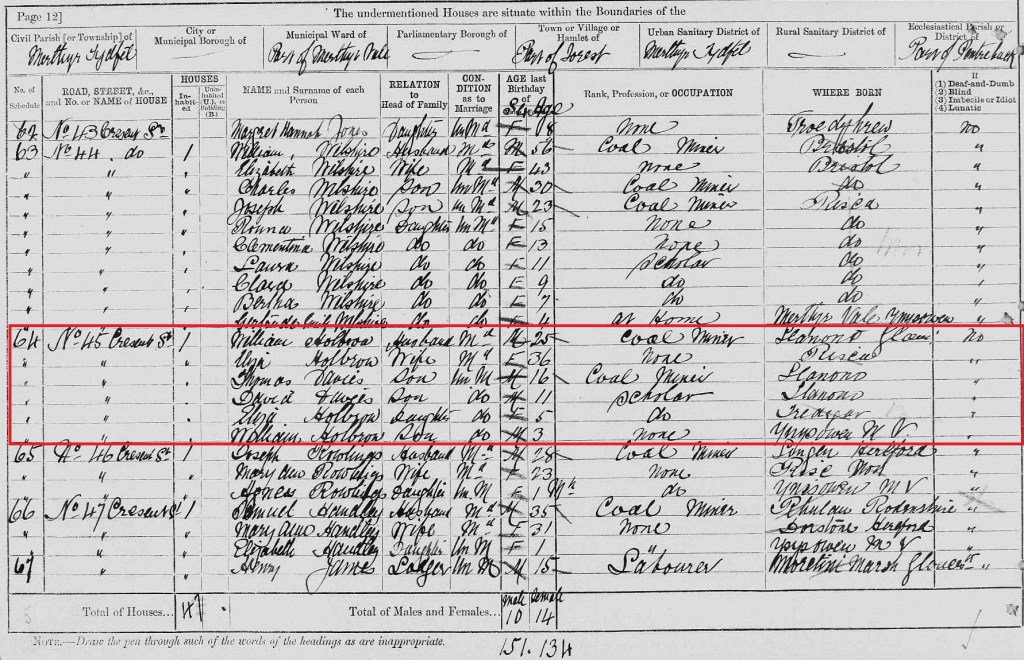 Page 12] The undermentioned Houses are situate within the Boundaries of the
Civil Parish [or Township] of City or Municipal Borough of Municipal Ward of Parliamentary Borough of Town or Village or Hamlet of Urban Sanitary District of Rural Sanitary District of Ecclesiastical Parish or District of
Merthyr Tydfil Part of Merthyr Vale Part of Forest Merthyr Tydfil Part of
No. of Schedule ROAD, STREET, &c., and No. or NAME of HOUSE HOUSES Inhabited Uninhabited (U.), or Building (B.) NAME and Surname of each Person RELATION to Head of Family CONDITION as to Marriage AGE last Birthday of Rank, Profession, or OCCUPATION WHERE BORN If (1) Deaf-and-Dumb (2) Blind (3) Imbecile or Idiot (4) Lunatic
62 No 43 Cresent St Margret Hannah Jones Daughter Un Md F 18 None Troedyhrew no
63 No 44 do 1 William Wilshire Husband Md M 56 Coal Miner Bristol "
" " " Elizabeth Wilshire Wife Md F 43 none Bristol "
" " " Charles Wilshire Son Un Md M 20 Coal Miner do "
" " " Joseph Wilshire Son Un Md M 23 Coal Miner Risca "
" " " Wilshire Daughter Un Md F 15 None do "
" " " Clementina Wilshire do do F 13 None do "
" " " Laura Wilshire do do F 11 Scholar do "
" " " Clara Wilshire do do F 9 do do "
" " " Bertha Wilshire do do F 7 do do "
" " " Wilshire do do F 4 at Home Merthyr Vale Ynysowen "
64 No 45 Cresent St 1 William Holbron Husband Md M 25 Coal Miner Llanono Glam no
" " Eliza Holbron Wife Md F 36 None Risca "
" " Thomas Davies Son Un M M 16 Coal Miner Llanono "
" " David Davies Son do M 11 Scholar Llanono "
" " Eliza Holbron Daughter do F 5 do Tredegar "
" " William Holbron Son do M 3 none Ynysowen M V "
65 No 46 Cresent St 1 Joseph Rowlings Husband Md M 28 Coal Miner Hereford "
" " Mary Ann Rowlings Wife Md F 23 none Mon "
" " Agnes Rowlings Daughter Un M F 1 Mth do Ynysowen M V "
66 No 47 Cresent St 1 Samuel Handley Husband Md M 35 Coal Miner "
" " Mary Ann Handley Wife Md F 31 None Hereford "
" " Elizabeth Handley Daughter Un M F 1 Ynysowen M V "
67 " James Lodger Un M M 15 Labourer Moretin Marsh "
Total of Houses... 4 Total of Males and Females... male 10 female 14
NOTE.—Draw the pen through such of the words of the headings as are inappropriate.
151. 134